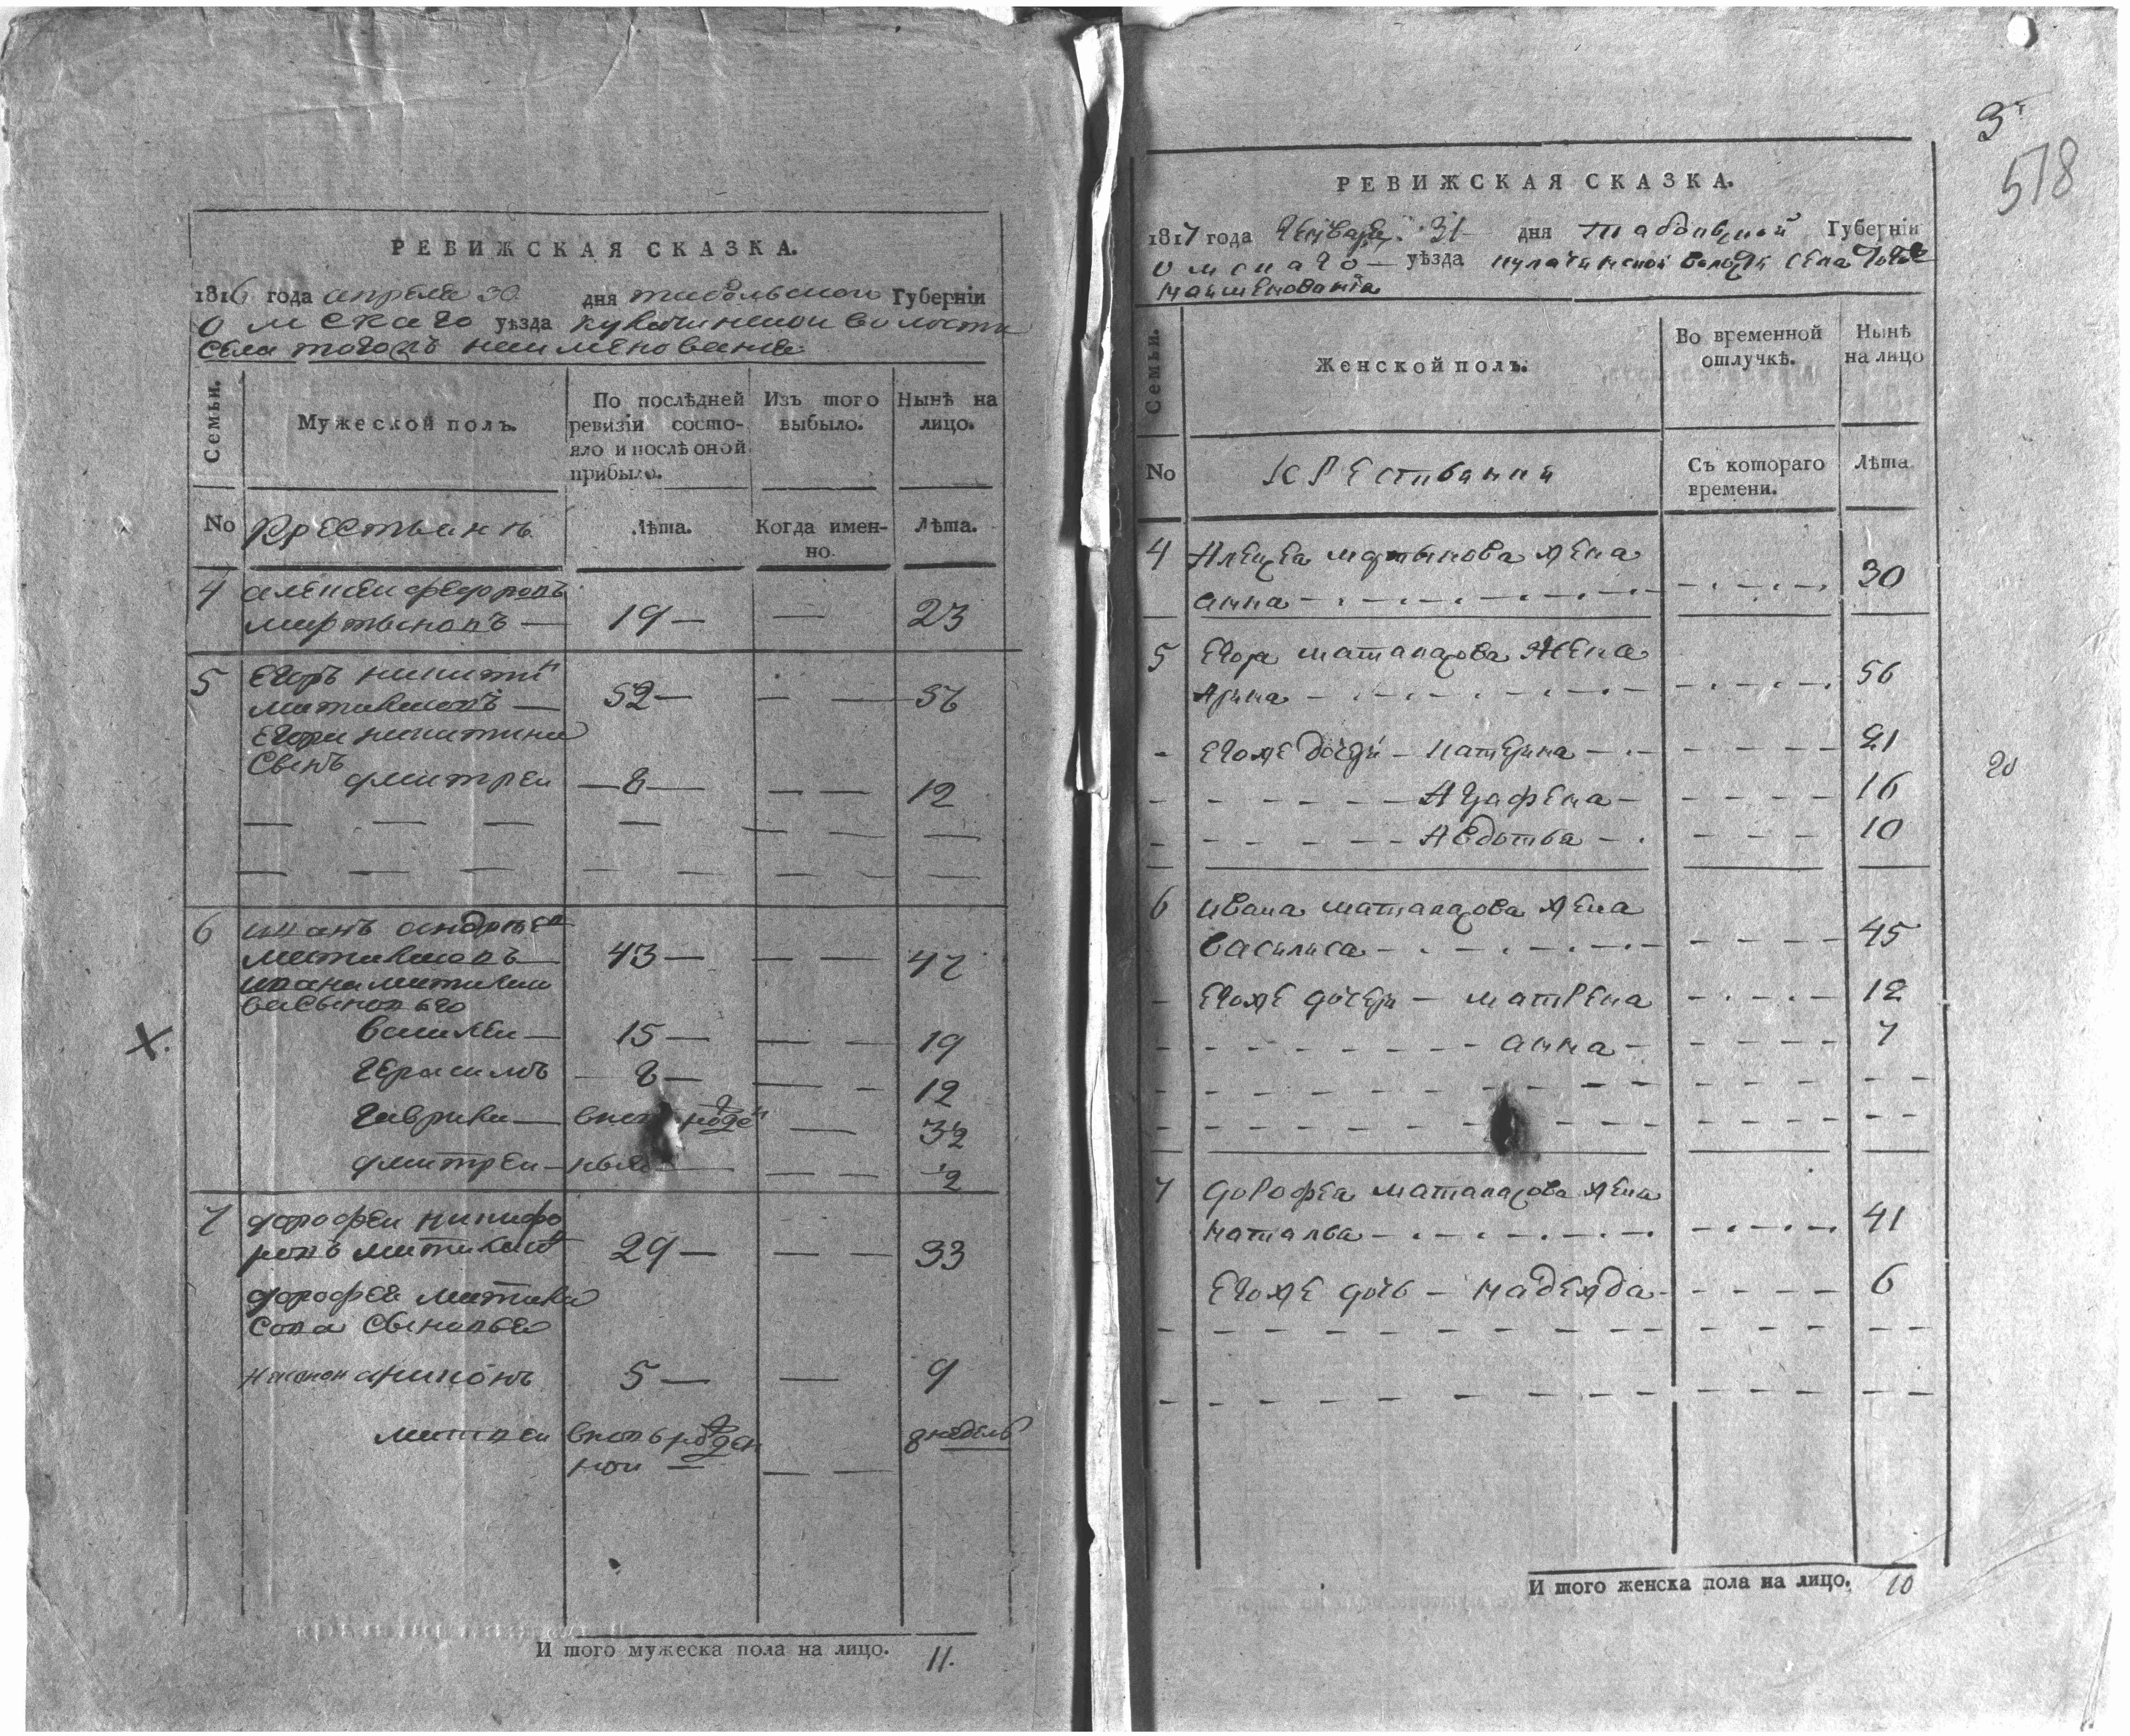 РЕВИЖСКАЯ СКАЗКА.
1816 года апреля 30 дня тобольской Губерніи
Омскаго уѣзда кулачинской волости
Села тогожъ наименования
Семьи.
Мужеской полъ.
По послѣдней ревизіи состояло и послѣ оной прибыло.
Изъ того выбыло.
Нынѣ на лицо.
No
Крестьянъ
Лѣта.
Когда именно.
Лѣта.
4 алексеи федоровъ
мартыновъ — 19 — — 23
5 Егоръ никитин
52 — — — 56
Егора никитина
Сынъ
дмитреи — 8 — — — 12
6 иванъ андреев
43 — — — 47
ивана
василеи — 15 — — — 19
Герасимъ — 8 — — — 12
Гаврила — внов рожден — 3½
дмитреи — ные — — — ½
7 дорофеи никифо
ровъ 29 — — — 33
дорофея
Сыновья
5 — — 9
матвеи вновь рожден 8 недель
нои — — —
И того мужеска пола на лицо. 11.
3
518
РЕВИЖСКАЯ СКАЗКА.
1817 года Генваря 31 дня Тобольской Губерніи
Омскаго — уѣзда кулачинской волости села тогоже
наименования
Семьи.
Женской полъ.
Во временной отлучкѣ.
Нынѣ на лицо
No
Крестьянки
Съ котораго времени.
Лѣта
4 Алексея мартынова жена
анна 30
5 Егора жена
Арина 56
Егоже дочери — катерина 21
Аграфена 16
Авдотья 10
20
6 ивана жена
Василиса 45
Егоже дочери — матрена 12
анна 7
7 дорофея жена
наталья 41
Егоже дочь — надежда 6
И того женска пола на лицо. 10